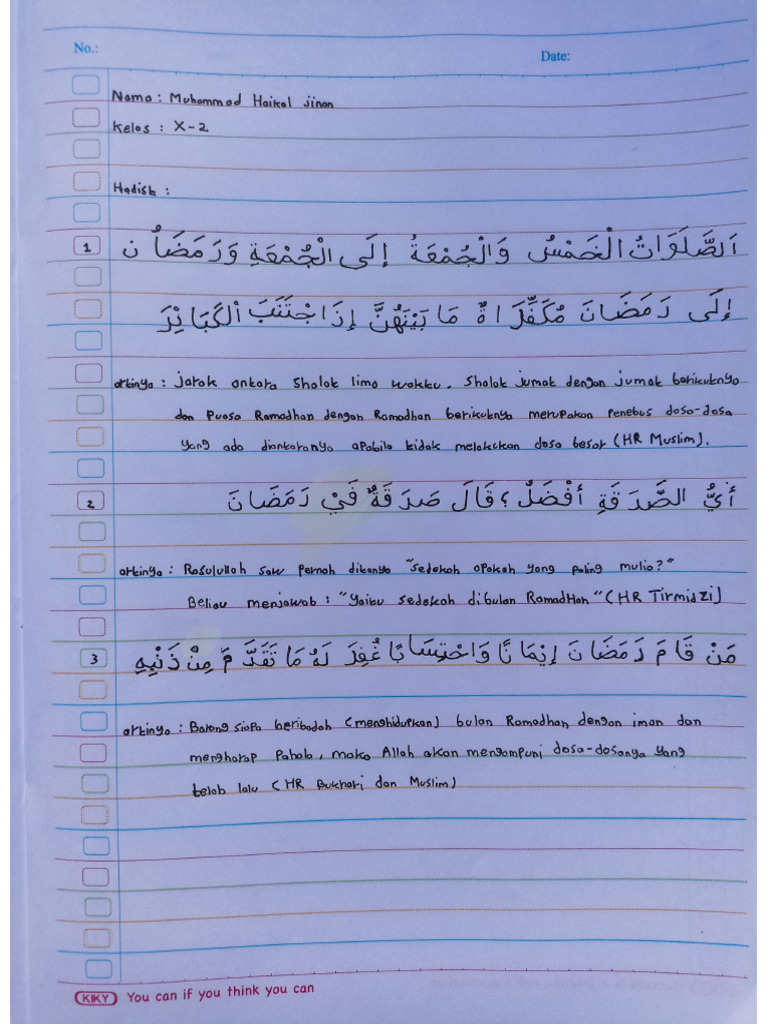 No.:
Date:
Nama : Muhammad Haikal Jinan
Kelas : X-2
Hadist :
1 اَلصَّلَوَاتُ الْخَمْسُ وَالْجُمْعَةُ إِلَى الْجُمْعَةِ وَرَمَضَاُ ن
إِلَى رَمَضَانَ مُكَفِّرَ اةٌ مَا بَيْنَهُنَّ إِذَا جْتَنَبَ الْكَبَائِرَ
artinya : Jarak antara Sholat lima waktu. Sholat jumat dengan jumat berikutnya
dan Puasa Ramadhan dengan Ramadhan berikutnya merupakan Penebus dosa-dosa
yang ada diantaranya apabila tidak melakukan dosa besar (HR Muslim).
2 أَيُّ الصَّدَقَةِ أَفْضَلُ ؟ قَالَ صَدَقَةٌ فَيْ رَمَضَانَ
artinya : Rasulullah saw Pernah ditanya "sedekah apakah yang paling mulia?"
Beliau menjawab : "yaitu sedekah dibulan RamadHan" (HR Tirmidzi)
3 مَنْ قَامَ رَمَضَانَ إِيْمَانًا وَاحْتِسَابًا غُفِرَ لَهُ مَا تَقَدَّمَ مِنْ ذَنْبِهِ
artinya : Barang siapa beribadah (menghidupkan) bulan Ramadhan, dengan iman dan
mengharap Pahala, maka Allah akan mengampuni dosa-dosanya yang
telah lalu (HR Bukhari dan Muslim)
KIKY You can if you think you can